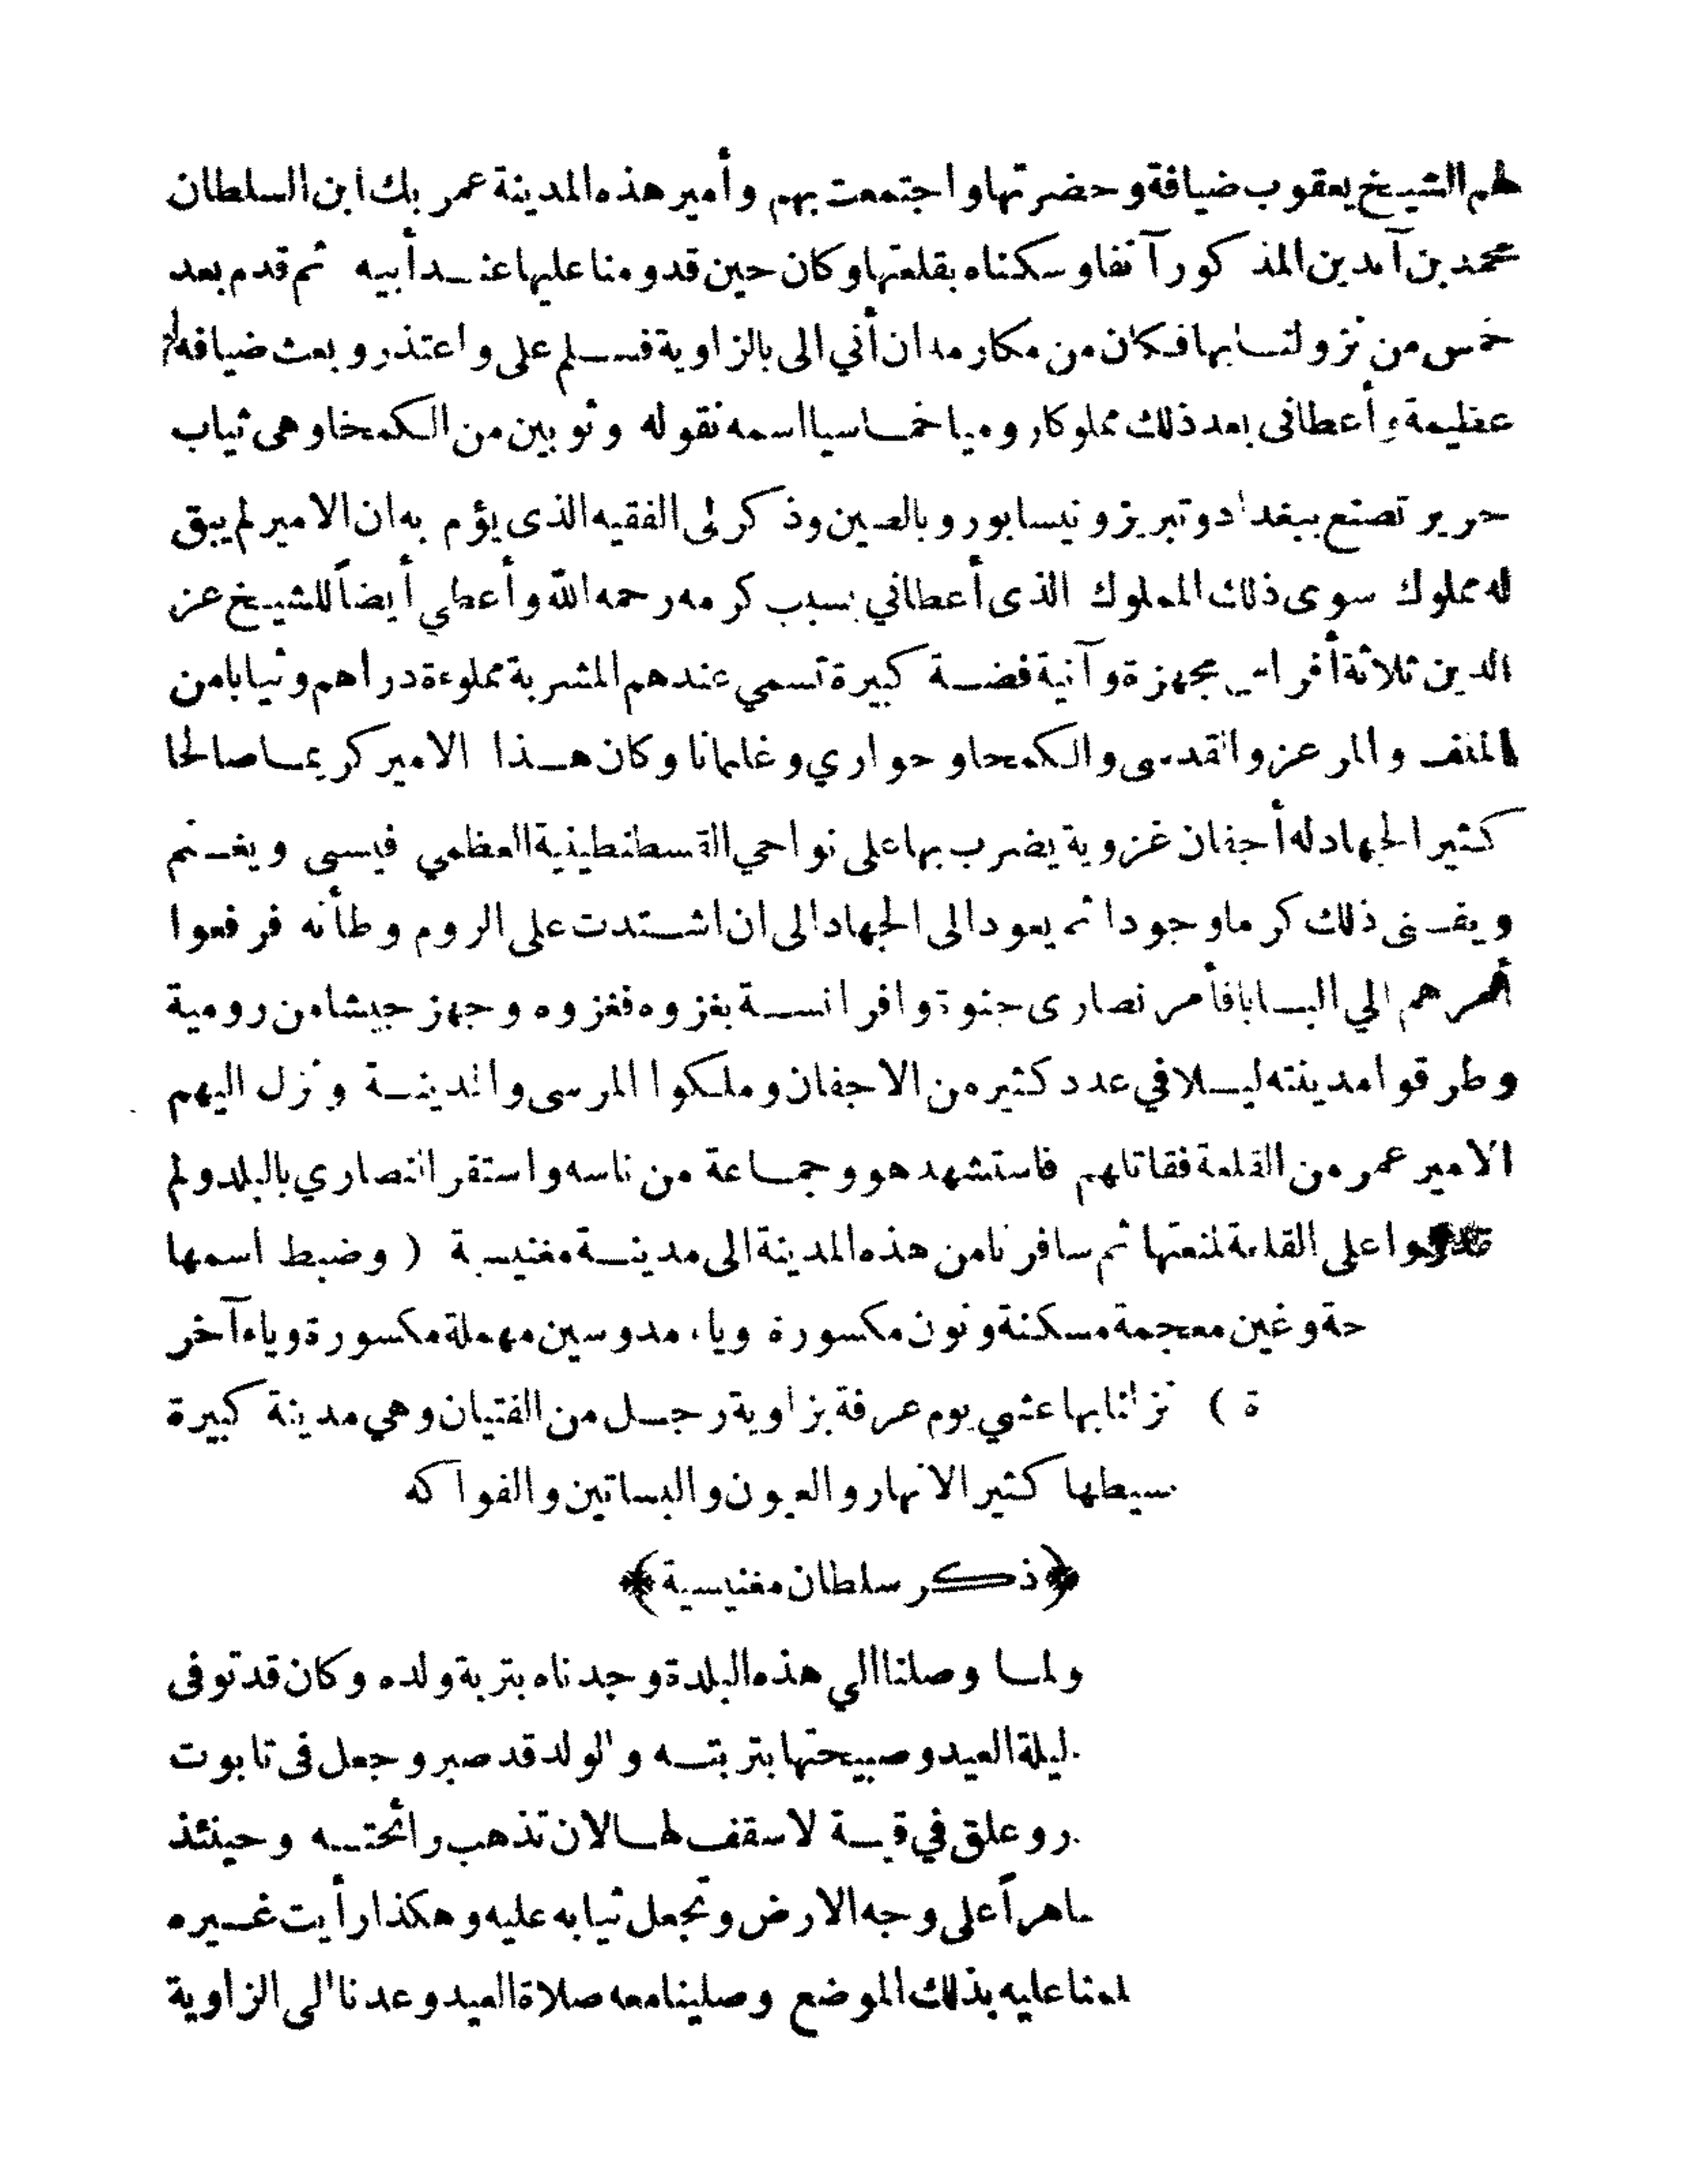 لهم الشيخ يعقوب ضيافة وحضرتها واجتمعت بهم وأمير هذه المدينة عمر بك ابن السلطان
محمد بن آيدين المذكور آنفا وسكناه بقلعتها وكان حين قدومنا عليها عند أبيه ثم قدم بعد
خمس من نزولنا بها فكان من مكارمه ان أتي الى بالزاوية فسلم على واعتذر وبعث ضيافة
عظيمة وأعطانى بعد ذلك مملوكا روميا خماسيا اسمه نقوله وثوبين من الكمخا وهى ثياب
حرير تصنع ببغداد وتبريز ونيسابور وبالصين وذكر لى الفقيه الذى يؤم به ان الامير لم يبق
له مملوك سوى ذلك المملوك الذى أعطاني بسبب كرمه رحمه الله وأعطي أيضاً للشيخ عز
الدين ثلاثة أفراس مجهزة وآنية فضة كبيرة تسمي عندهم المشربة مملوءة دراهم وثيابا من
الملف والمرعز والقدسى والكمخا وجواري وغلمانا وكان هذا الامير كريما صالحا
كثير الجهاد له أجفان غزوية يضرب بها على نواحي القسطنطينية العظمي فيسبى ويغنم
ويفنى ذلك كرما وجودا ثم يعود الى الجهاد الى ان اشتدت على الروم وطأته فرفعوا
أمرهم الي البابا فأمر نصارى جنوة وافرانسة بغزوه فغزوه وجهز جيشا من رومية
وطرقوا مدينته ليلا في عدد كثير من الاجفان وملكوا المرسى والمدينة ونزل اليهم
الامير عمر من القلعة فقاتلهم فاستشهد هو وجماعة من ناسه واستقر النصاري بالبلد ولم
على القلعة لمنعتها ثم سافرنا من هذه المدينة الى مدينة مغنيسية ( وضبط اسمها
حة وغين معجمة مسكنة ونون مكسورة وياء مد وسين مهملة مكسورة وياء آخر
ة ) نزلنا بها عشي يوم عرفة بزاوية رجل من الفتيان وهي مدينة كبيرة
سيطها كثير الانهار والعيون والبساتين والفواكه
﴿ذكر سلطان مغنيسية﴾
ولما وصلنا الي هذه البلدة وجدناه بتربة ولده وكان قد توفى
ليلة العيد وصبيحتها بتربته والولد قد صبر وجعل فى تابوت
ر وعلق في قبة لا سقف لها لان تذهب رائحته وحينئذ
اهراً على وجه الارض وتجعل ثيابه عليه وهكذا رأيت غيره
لمنا عليه بذلك الموضع وصلينا معه صلاة العيد وعدنا الى الزاوية